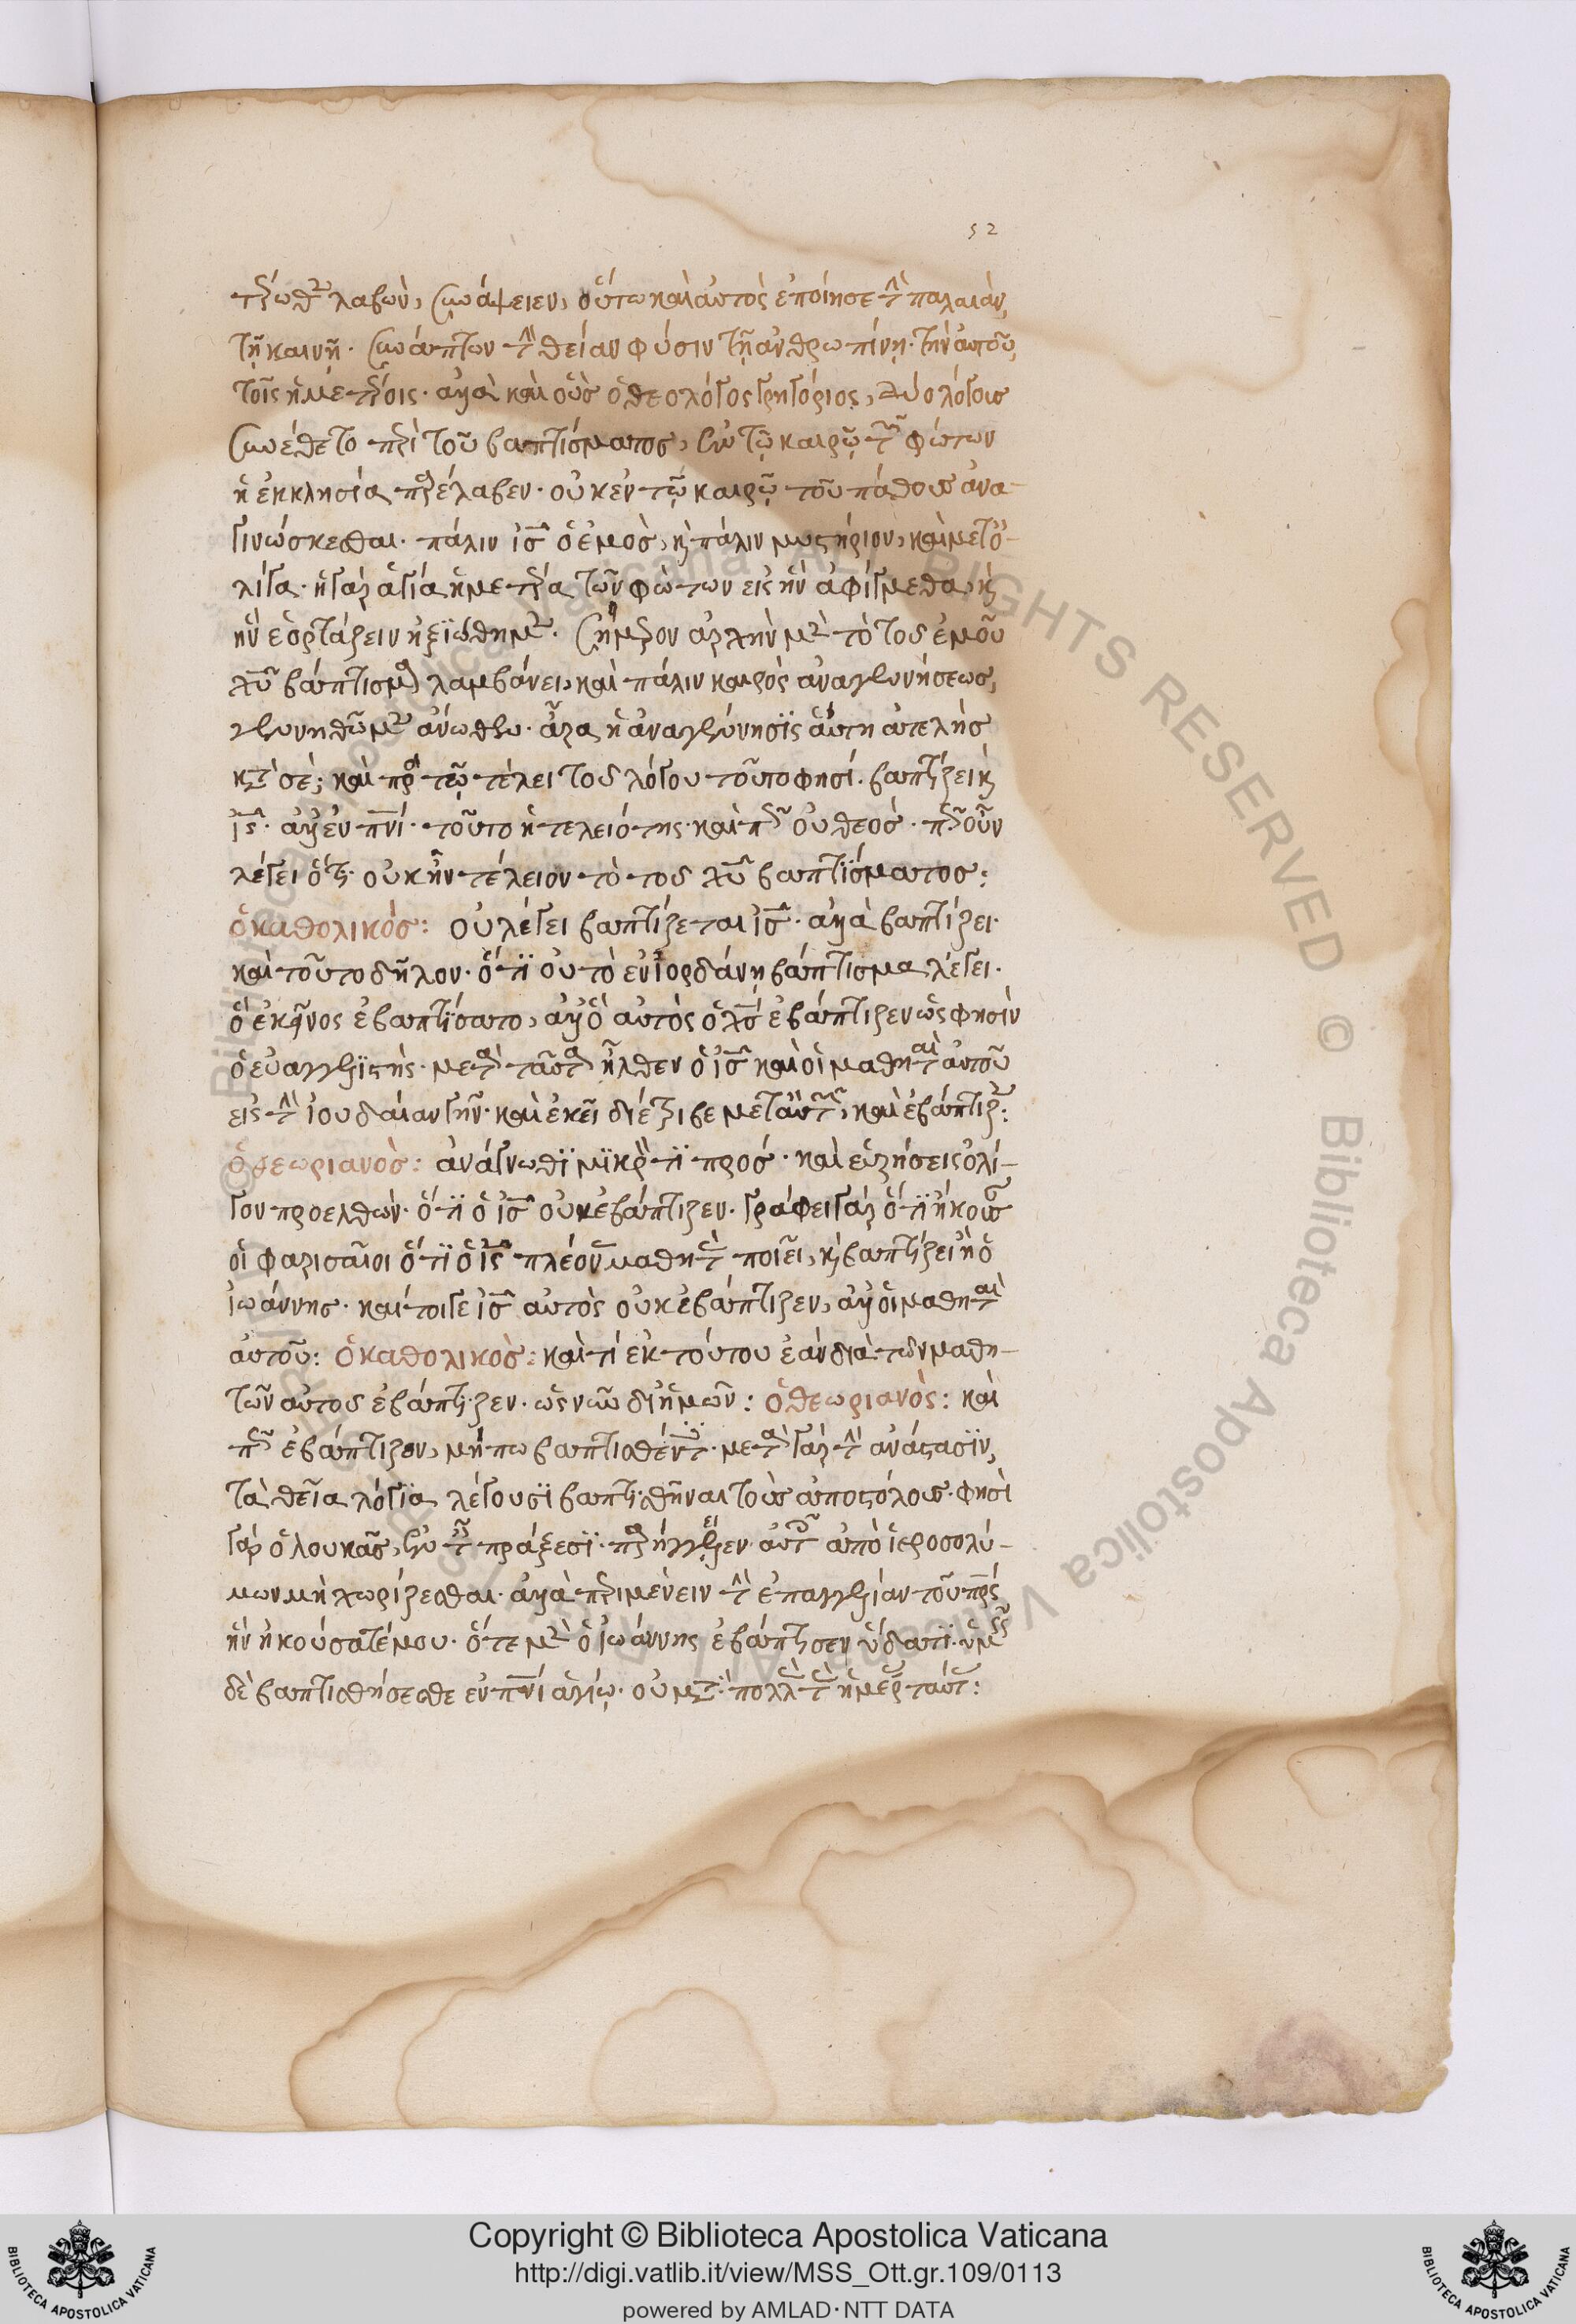 52
τέρωθεν λαβὼν, συνάψειεν, οὕτω καὶ αὐτὸς ἐποίησε τὴν παλαιὰν,
τῇ καινῇ. συνάπτων τὴν θείαν φύσιν τῇ ἀνθρωπίνῃ. τὴν αὐτοῦ,
τοῖς ἡμετέροις. ἀλλὰ καὶ οὓς ὁ θεολόγος γρηγόριος, δύο λόγους
συνέθετο περὶ τοῦ βαπτίσματος, ἐν τῷ καιρῷ τῶν φώτων
ἡ ἐκκλησία παρέλαβεν. οὐκ ἐν τῷ καιρῷ τοῦ πάθους ἀνα-
γινώσκεσθαι. πάλιν ἰς ὁ ἐμὸς, καὶ πάλιν μυστήριον, καὶ μετ' ὀ-
λίγα. ἡ γὰρ ἁγία ἡμετέρα τῶν φώτων εἰς ἣν ἀφίγμεθα, καὶ
ἣν ἑορτάζειν ἠξιώθημεν. σήμερον ἀρχὴν μὲν τὸ τοῦ ἐμοῦ
χυ βάπτισμα λαμβάνει, καὶ πάλιν καιρὸς ἀναγεννήσεως,
γεννηθῶμεν ἄνωθεν. ἆρα ἡ ἀναγέννησις αὕτη ἀτελὴς
κατὰ σέ; καὶ πρὸς τῷ τέλει τοῦ λόγου τοῦτο φησί. βαπτίζει καὶ
ἰς. ἀλλ' ἐν πνι. τοῦτο ἡ τελειότης. καὶ πῶς οὐ θεός. πῶς οὖν
λέγει ὅτι οὐκ ἦν τέλειον τὸ τοῦ χυ βαπτίσματος:
ὁ καθολικός: οὐ λέγει βαπτίζεται ἰς. ἀλλὰ βαπτίζει.
καὶ τοῦτο δῆλον. ὅτι οὐ τὸ ἐν ἰορδάνῃ βάπτισμα λέγει.
ὃ ἐκεῖνος ἐβαπτίσατο, ἀλλ' ὃ αὐτὸς ὁ χς ἐβάπτιζεν ὥς φησιν
ὁ εὐαγγελιστής. μετὰ ταῦτα ἦλθεν ὁ ἰς καὶ οἱ μαθηταὶ αὐτοῦ
εἰς τὴν ἰουδαίαν γῆν. καὶ ἐκεῖ διέτριβε μετ' αὐτῶν, καὶ ἐβάπτιζεν:
ὁ θεωριανὸς: ἀνάγνωθι μικρόν τι πρός. καὶ εὑρήσεις ὀλί-
γον προελθών. ὅτι ὁ ἰς οὐκ ἐβάπτιζεν. γράφει γὰρ ὅτι ἤκουσαν
οἱ φαρισαῖοι ὅτι ὁ ἰς πλέονας μαθητὰς ποιεῖ, καὶ βαπτίζει ἢ ὁ
ἰωάννης. καίτοιγε ἰς αὐτὸς οὐκ ἐβάπτιζεν, ἀλλ' οἱ μαθηταὶ
αὐτοῦ: ὁ καθολικὸς: καὶ τί ἐκ τούτου ἐὰν διὰ τῶν μαθη-
τῶν αὐτοῦ ἐβάπτιζεν. ὡς νῦν δι' ἡμῶν: ὁ θεωριανὸς: καὶ
πῶς ἐβάπτιζον, μήπω βαπτισθέντες. μετὰ γὰρ τὴν ἀνάστασιν,
τὰ θεῖα λόγια λέγουσι βαπτισθῆναι τοὺς ἀποστόλους. φησὶ
γὰρ ὁ λουκᾶς, ἐν ταῖς πράξεσι. παρήγγειλεν αὐτοῖς ἀπὸ ἱεροσολύ-
μων μὴ χωρίζεσθαι. ἀλλὰ περιμένειν τὴν ἐπαγγελίαν τοῦ πρς
ἣν ἠκούσατέ μου. ὅτε μὲν ὁ ἰωάννης ἐβάπτισεν ὕδατι. ὑμεῖς
δὲ βαπτισθήσεσθε ἐν πνι ἁγίῳ. οὐ μετὰ πολλὰς τὰς ἡμέρας ταύτας:
Copyright © Biblioteca Apostolica Vaticana
http://digi.vatlib.it/view/MSS_Ott.gr.109/0113
powered by AMLAD·NTT DATA